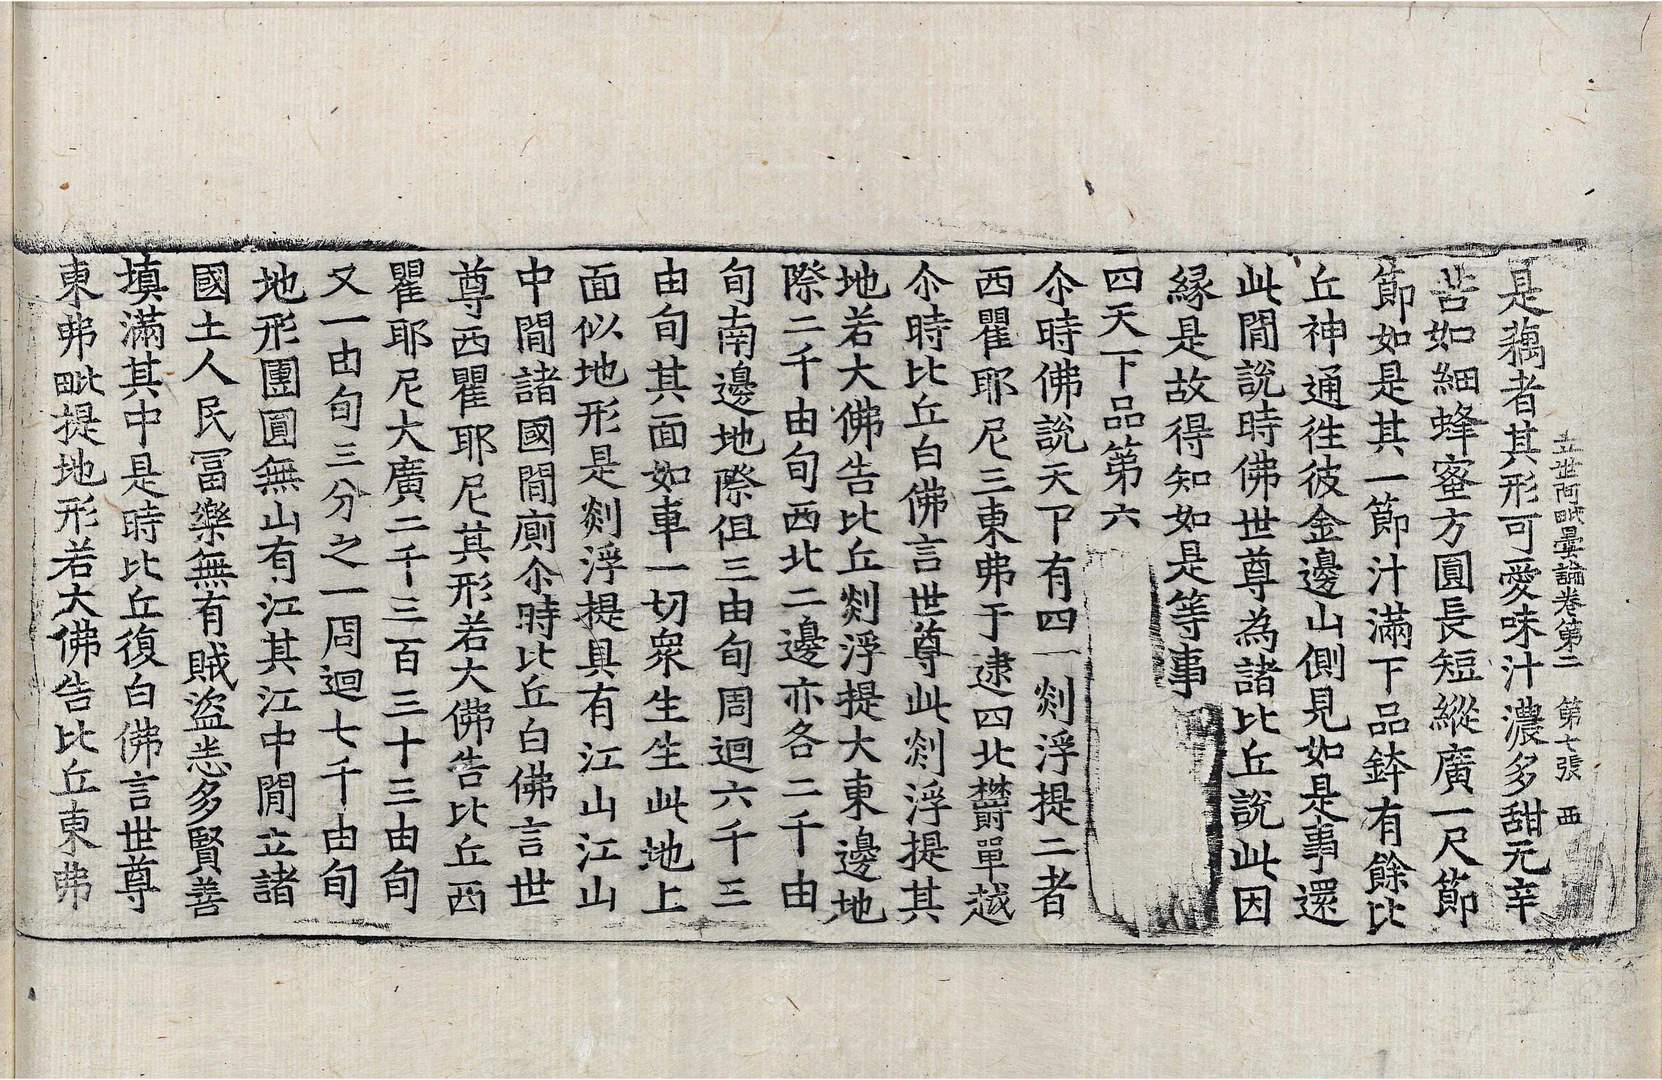 立世阿毗曇論卷第二 第七張 西
是藕者其形可愛味汁濃多甜无辛
苦如細蜂蜜方圓長短縱廣一尺節
節如是其一節汁滿下品鉢有餘比
丘神通徃彼金邊山側見如是事還
此閒說時佛世尊為諸比丘說此因
縁是故得知如是等事
四天下品第六
尒時佛說天下有四一剡浮提二者
西瞿耶尼三東弗于逮四北欝單越
尒時比丘白佛言世尊此剡浮提其
地若大佛告比丘剡浮提大東邊地
際二千由旬西北二邊亦各二千由
旬南邊地際但三由旬周迴六千三
由旬其面如車一切衆生生此地上
面似地形是剡浮提具有江山江山
中閒諸國閒廁尒時比丘白佛言世
尊西瞿耶尼其形若大佛告比丘西
瞿耶尼大廣二千三百三十三由旬
又一由旬三分之一周迴七千由旬
地形團圓無山有江其江中閒立諸
國土人民冨樂無有賊盗恚多賢善
填滿其中是時比丘復白佛言世尊
東弗毗提地形若大佛告比丘東弗